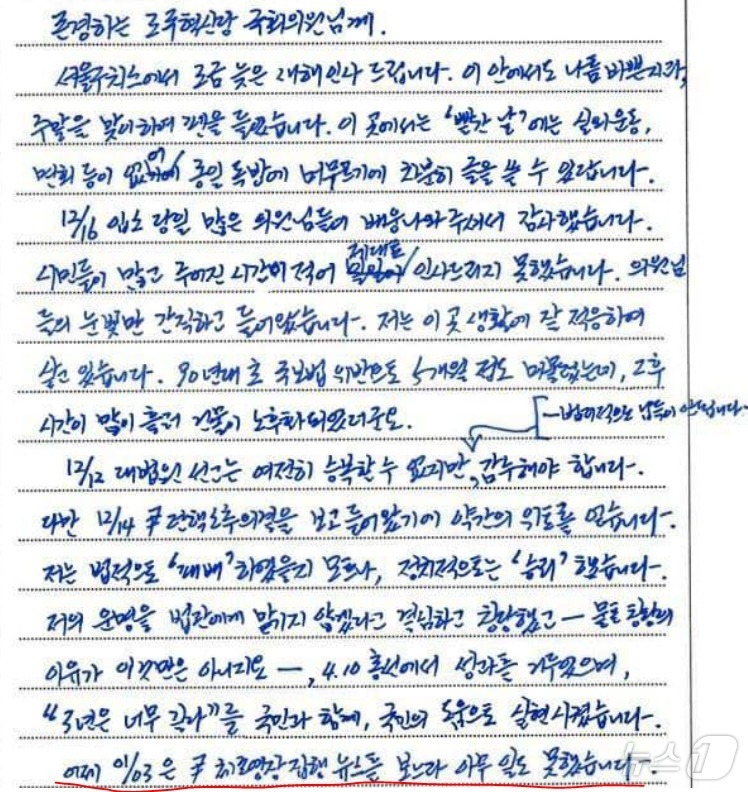 존경하는 조국혁신당 국회의원님께.
서울구치소에서 조금 늦은 새해인사 드립니다. 이 안에서도 나름 바쁜지라,
주말을 맞이하여 펜을 들었습니다. 이 곳에서는 '빨간 날'에는 실외운동,
면회 등이 없어 종일 독방에 머무르기에 차분히 글을 쓸 수 있답니다.
12/16 입소 당일 많은 의원님들이 배웅나와주셔서 감사했습니다.
시민들이 많고 주어진 시간이 적어 제대로 인사드리지 못했습니다. 의원님
들의 눈빛만 간직하고 들어왔습니다. 저는 이 곳 생활에 잘 적응하여
살고 있습니다. 90년대 초 국보법 위반으로 5개월 정도 머물렀는데, 그후
시간이 많이 흘러 건물이 노후화되었더군요.
—법리적으로 납득이 안 됩니다—
12/12 대법원 선고는 여전히 승복할 수 없지만, 감수해야 합니다.
다만 12/14 尹 탄핵소추의결을 보고 들어왔기에 약간의 위로를 얻습니다.
저는 법적으로 '패배'하였을지 모르나, 정치적으로는 '승리'했습니다.
저의 운명을 법관에게 맡기지 않겠다고 결심하고 창당했고 — 물론 창당의
이유가 이것만은 아니지요 —, 4.10 총선에서 성과를 거두었으며,
"3년은 너무 길다"를 국민과 함께, 국민의 도움으로 실현시켰습니다.
어제 01/03은 尹 체포영장 집행 뉴스를 보느라 아무 일도 못했습니다.
뉴스1